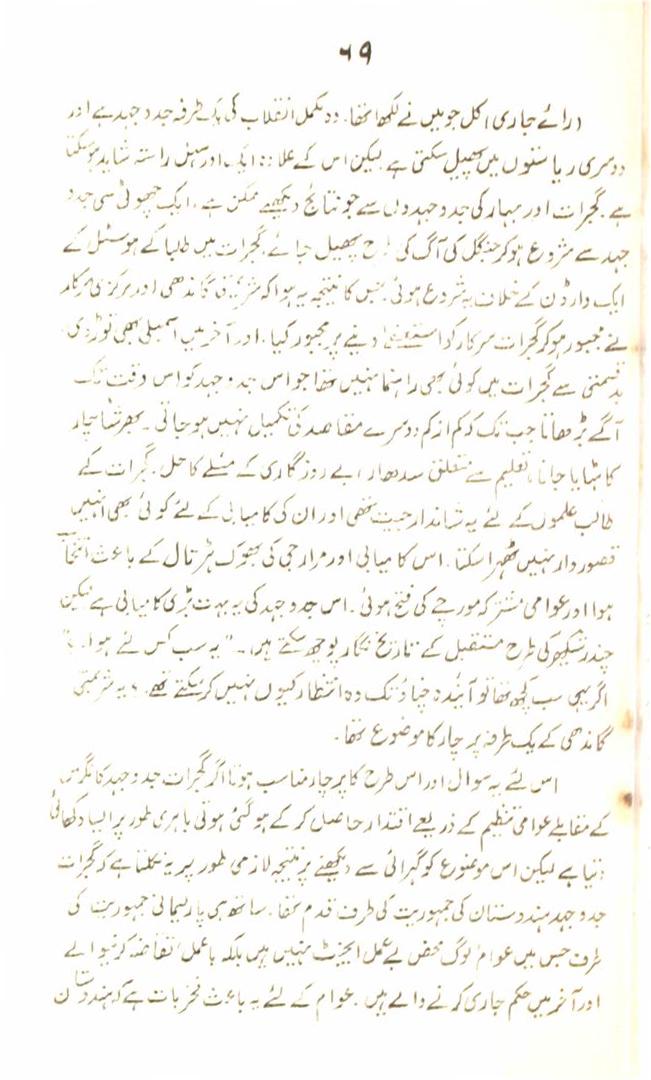 ۶۹
(رائے جاری) کل جو میں نے لکھا تھا۔ وہ مکمل انقلاب کی یک طرفہ جدوجہد ہے اور
دوسری ریاستوں میں پھیل سکتی ہے لیکن اس کے علاوہ ایک اور سہل راستہ شاید ہو سکتا
ہے۔ گجرات اور بہار کی جدوجہدوں سے جو نتائج دیکھے ممکن ہے۔ ایک چھوٹی سی جدو
جہد سے شروع ہو کر جنگل کی آگ کی طرح پھیل جائے۔ گجرات میں طلبا کے ہوسٹل کے
ایک وارڈن کے خلاف یہ شروع ہوئی جس کا نتیجہ یہ ہوا کہ شریمتی گاندھی اور مرکزی سرکار
نے مجبور ہو کر گجرات سرکار کو استعفیٰ دینے پر مجبور کیا۔ اور آخر میں اسمبلی بھی توڑ دی۔
بدقسمتی سے گجرات میں کوئی بھی راہنما نہیں تھا جو اس جدوجہد کو اس وقت تک
آگے بڑھاتا جب تک کہ کم از کم دوسرے مقاصد کی تکمیل نہیں ہو جاتی۔ بھرشٹاچار
کا مٹایا جانا، تعلیم سے متعلق سدھار، بے روزگاری کے مسئلے کا حل۔ گجرات کے
طالب علموں کے لئے یہ شاندار جیت تھی اور ان کی کامیابی کے لئے کوئی بھی انہیں
قصوردار نہیں ٹھہرا سکتا۔ اس کامیابی اور مرارجی کی بھوک ہڑتال کے باعث انتخاب
ہوا اور عوامی مشترکہ مورچے کی فتح ہوئی۔ اس جدوجہد کی یہ بہت بڑی کامیابی ہے لیکن
چندر شیکھر کی طرح مستقبل کے تاریخ نگار پوچھ سکتے ہیں۔ "یہ سب کس لئے ہوا۔"
اگر یہی سب کچھ تھا تو آئندہ چناؤ تک وہ انتظار کیوں نہیں کر سکتے تھے۔ یہ شریمتی
گاندھی کے یک طرفہ پرچار کا موضوع تھا۔
اس لئے یہ سوال اور اس طرح کا پرچار مناسب ہوتا اگر گجرات جدوجہد کانگریس
کے مقابلے عوامی تنظیم کے ذریعے اقتدار حاصل کر کے ہو گئی ہوتی باہری طور پر ایسا دکھائی
دیتا ہے لیکن اس موضوع کو گہرائی سے دیکھنے پر نتیجہ لازمی طور پر یہ نکلتا ہے کہ گجرات
جدوجہد ہندوستان کی جمہوریت کی طرف قدم تھا۔ ساتھ ہی پارلیمانی جمہوریت کی
طرف جس میں عوام لوگ محض بے عمل ایجنٹ نہیں ہیں بلکہ باعمل، تقاضہ کرنیوالے
اور آخر میں حکم جاری کرنے والے ہیں۔ عوام کے لئے یہ باعث فخر بات ہے کہ ہندوستان